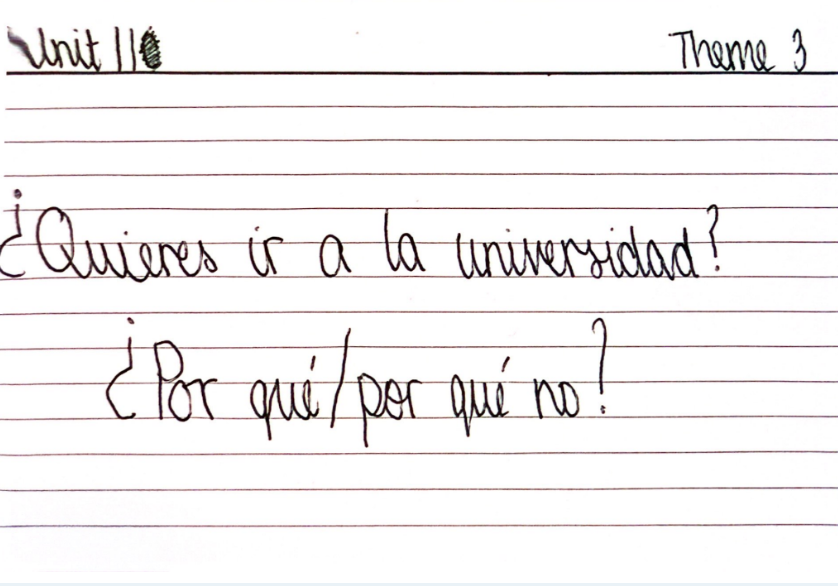 Unit 11 Theme 3
¿Quieres ir a la universidad?
¿Por qué/por qué no?